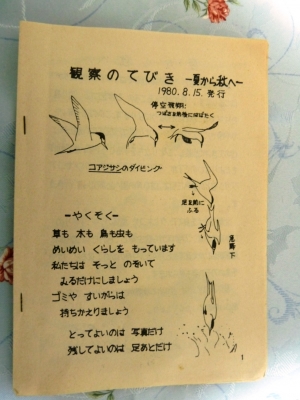 観察のてびき －夏から秋へ－
1980.8.15.発行
停空飛翔
つばさを前後にはばたく
コアジサシのダイビング
足を前に
ふる
急降下
－やくそく－
草も 木も 鳥も虫も
めいめい くらしを もっています
私たちは そっと のぞいて
みるだけにしましょう
ゴミや すいがらは
持ちかえりましょう
とってよいのは 写真だけ
残してよいのは 足あとだけ
1